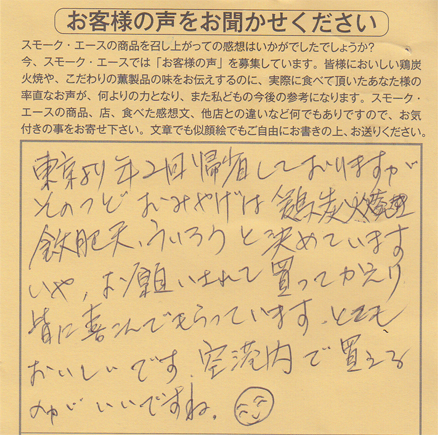 お客様の声をお聞かせください
スモーク・エースの商品を召し上がっての感想はいかがでしたでしょうか?
今、スモーク・エースでは「お客様の声」を募集しています。皆様においしい鶏炭
火焼や、こだわりの薫製品の味をお伝えするのに、実際に食べて頂いたあなた様の
率直なお声が、何よりの力となり、また私どもの今後の参考になります。スモーク・
エースの商品、店、食べた感想文、他店との違いなど何でもありですので、お気
付きの事をお寄せ下さい。文章でも似顔絵でもご自由にお書きの上、お送りください。
東京より年2回帰省しておりますが
そのつど おみやげは 鶏炭火焼
飫肥天、ういろうと決めています
いや、お願いされて買ってかえり
皆に喜こんでもらっています。とても
おいしいです。空港内で買える
のがいいですね。